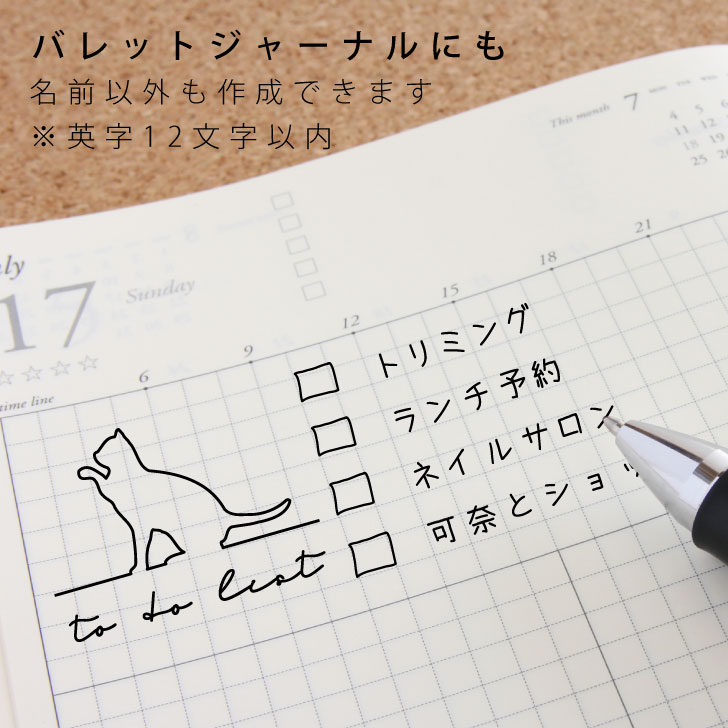 バレットジャーナルにも
名前以外も作成できます
※英字12文字以内
This month 7 MON TUE WED
4 5
11 12
18 19
25 26
17 Sunday
6 9 12 15 18 21
time line
トリミング
ランチ予約
ネイルサロン
可奈とショッ
to do list